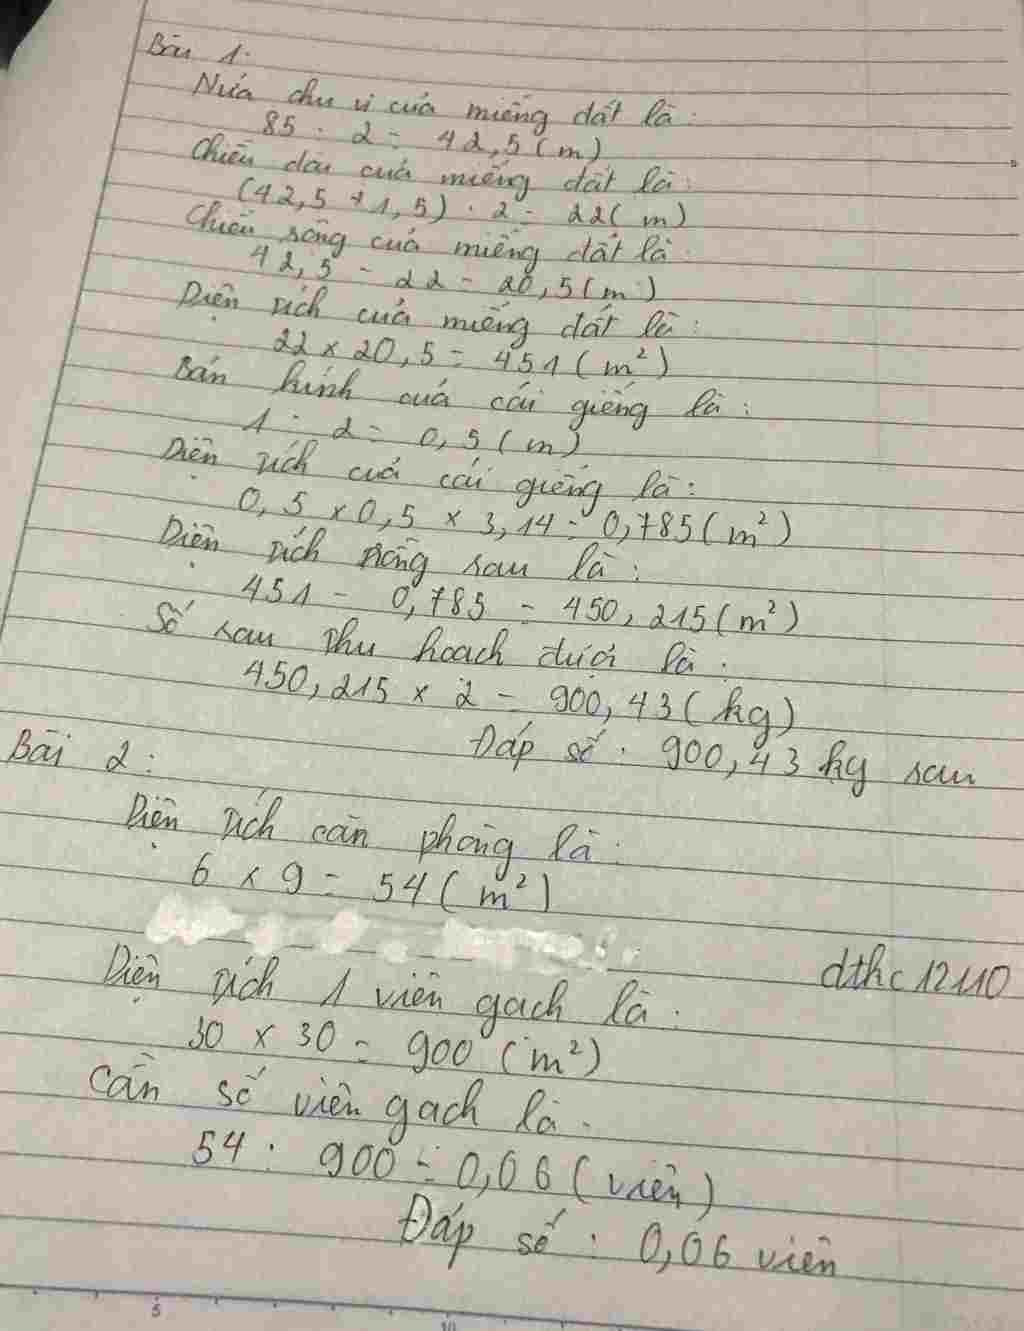 Bài 1:
Nửa chu vi của miếng đất là:
85 : 2 = 42,5 (m)
Chiều dài của miếng đất là:
(42,5 + 1,5) : 2 = 22 (m)
Chiều rộng của miếng đất là:
42,5 - 22 = 20,5 (m)
Diện tích của miếng đất là:
22 x 20,5 = 451 (m²)
Bán kính của cái giếng là:
1 : 2 = 0,5 (m)
Diện tích của cái giếng là:
0,5 x 0,5 x 3,14 = 0,785 (m²)
Diện tích trồng rau là:
451 - 0,785 = 450,215 (m²)
Số rau thu hoạch được là:
450,215 x 2 = 900,43 (kg)
Đáp số: 900,43 kg rau
Bài 2:
Diện tích căn phòng là:
6 x 9 = 54 (m²)
dthc12110
Diện tích 1 viên gạch là:
30 x 30 = 900 (m²)
Cần số viên gạch là:
54 : 900 = 0,06 (viên)
Đáp số: 0,06 viên
5
10